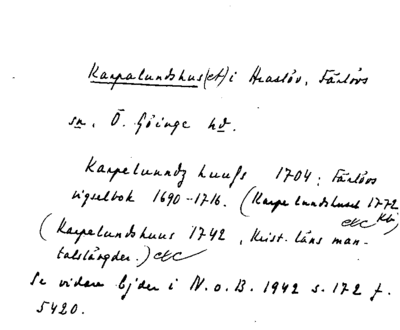 Karpalundshus(et) i Araslöv, Färlövs
sn, Ö. Göinge hd.
Karpelunndz huuss 1704; Färlövs
vigselbok 1690-1716. (Karpe lundshuset 1772
Kbi)
(Karpelundshuus 1742, Krist. läns man-
talslängder.)
Se vidare Ejder i N.o.B. 1942 s. 172 f.
5420.